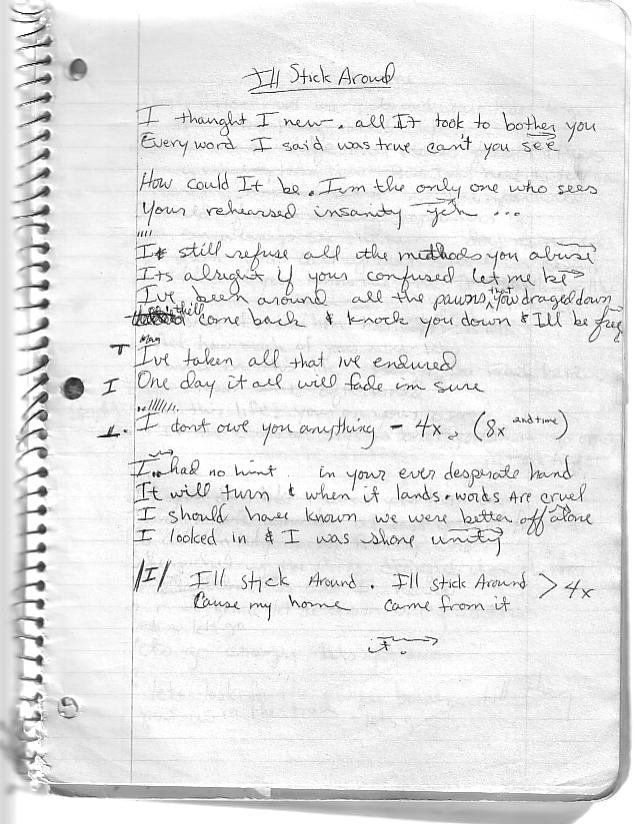 Ill Stick Around
I thaught I new. all It took to bother you
Every word I said was true can't you see
How could It be. Im the only one who sees
Your rehearsed insanity yeh ...
I still refuse all the methods you abuse
Its alright if your confused let me be
Ive been around all the pawns that you draged down
come back & knock you down & Ill be free
Ive taken all that ive endured
One day it all will fade im sure
I dont owe you anything - 4x. (8x 2nd time)
I had no hint. in your ever desperate hand
It will turn & when it lands. words are cruel
I should have known we were better off alone
I looked in & I was shone unity
/I/ I'll stick Around. I'll stick Around > 4x
Cause my home came from it